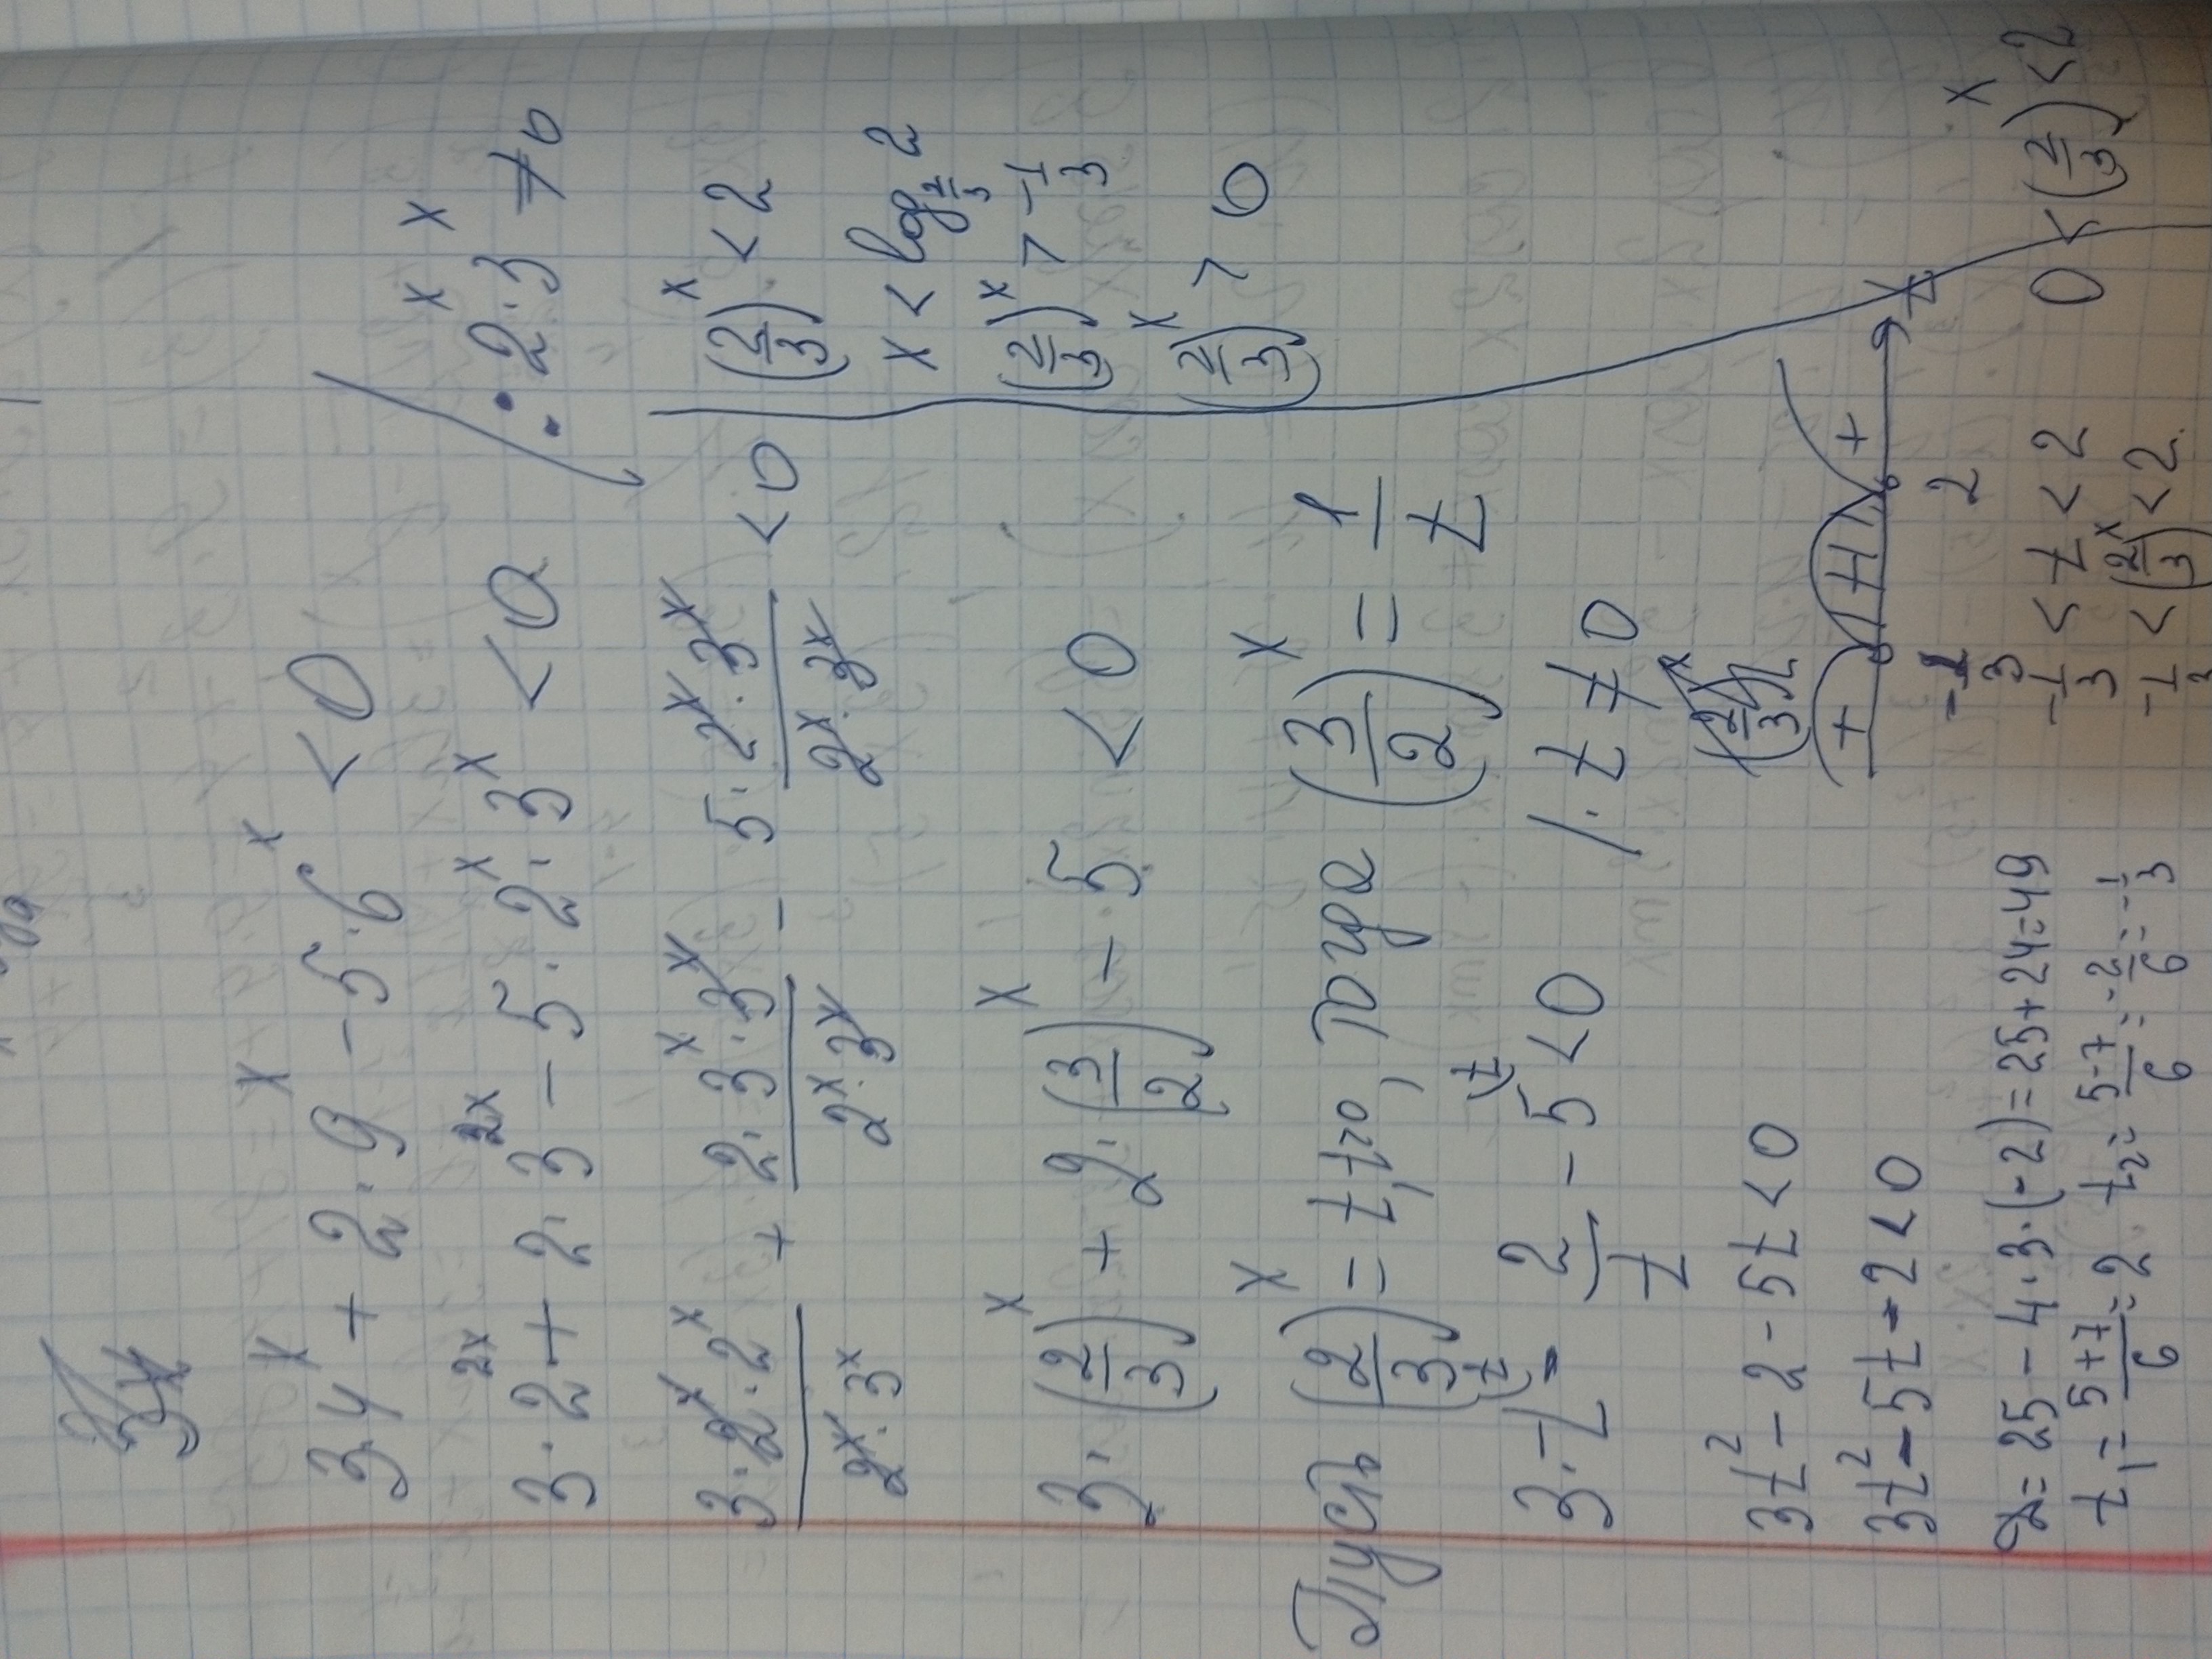 3·4ˣ + 2·9ˣ - 5·6ˣ < 0
3·2²ˣ + 2·3²ˣ - 5·2ˣ·3ˣ < 0 /: 2ˣ·3ˣ ≠ 0
3·2ˣ·2ˣ/2ˣ·3ˣ + 2·3ˣ·3ˣ/2ˣ·3ˣ - 5·2ˣ·3ˣ/2ˣ·3ˣ < 0
3·(2/3)ˣ + 2·(3/2)ˣ - 5 < 0
Пусть (2/3)ˣ = t, t>0, тогда (3/2)ˣ = 1/t
3·t - 2/t - 5 < 0 /· t ≠ 0
3t² - 2 - 5t < 0
3t² - 5t - 2 < 0
D = 25 - 4·3·(-2) = 25 + 24 = 49
t₁ = 5+7/6 = 2 t₂ = 5-7/6 = -2/6 = -1/3
+ + t
-1/3 2
-1/3 < t < 2
-1/3 < (2/3)ˣ < 2
(2/3)ˣ < 2
x < log 2/3 2
(2/3)ˣ > -1/3
(2/3)ˣ > 0
0 < (2/3)ˣ < 2